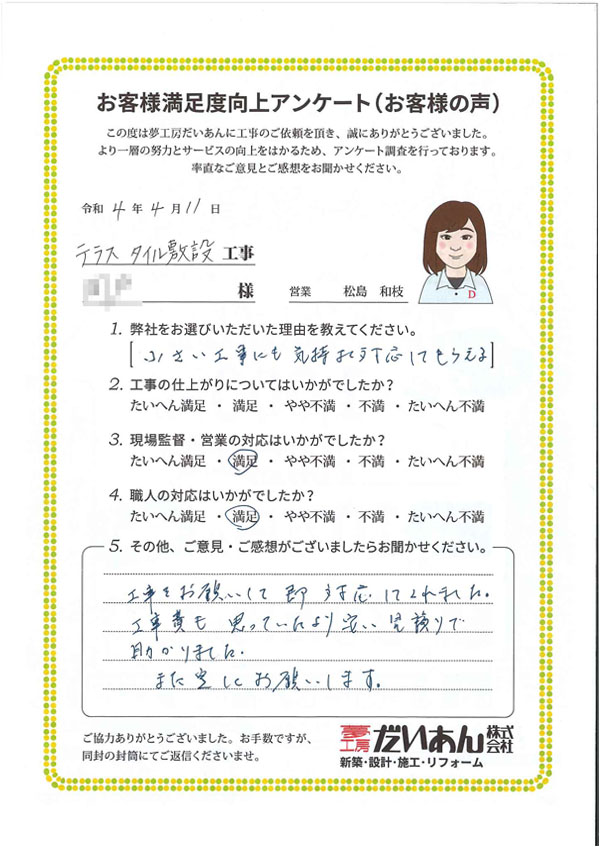 お客様満足度向上アンケート（お客様の声）
この度は夢工房だいあんに工事のご依頼を頂き、誠にありがとうございました。
より一層の努力とサービスの向上をはかるため、アンケート調査を行っております。
率直なご意見とご感想をお聞かせください。
令和 4 年 4 月 11 日
テラス タイル敷設 工事
様 営業 松島 和枝
D
1. 弊社をお選びいただいた理由を教えてください。
小さい工事にも気持よく対応してもらえる
2. 工事の仕上がりについてはいかがでしたか？
たいへん満足 ・ 満足 ・ やや不満 ・ 不満 ・ たいへん不満
3. 現場監督・営業の対応はいかがでしたか？
たいへん満足 ・ 満足 ・ やや不満 ・ 不満 ・ たいへん不満
4. 職人の対応はいかがでしたか？
たいへん満足 ・ 満足 ・ やや不満 ・ 不満 ・ たいへん不満
5. その他、ご意見・ご感想がございましたらお聞かせください。
工事をお願いして即対応してくれました。
工事費も思っていたより安い見積りで
助かりました。
また にお願いします。
ご協力ありがとうございました。お手数ですが、
同封の封筒にてご返信くださいませ。
夢工房 だいあん 株式会社
新築・設計・施工・リフォーム